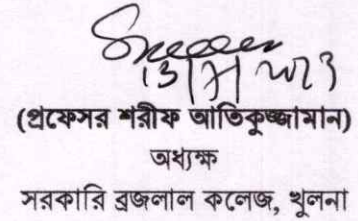 (প্রফেসর শরীফ আতিকুজ্জামান)
অধ্যক্ষ
সরকারি ব্রজলাল কলেজ, খুলনা